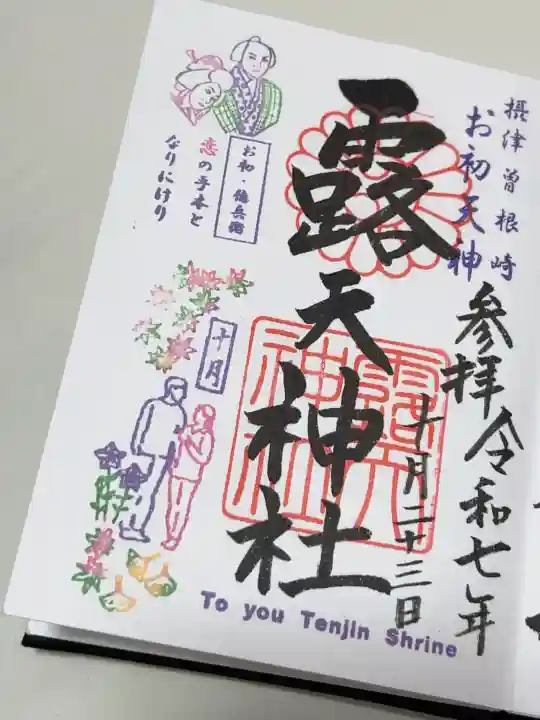 摂津曽根崎
お初天神
参拝令和七年
十月二十三日
露天神社
露天神社
お初・徳兵衛
恋の手本と
なりにけり
十月
To you Tenjin Shrine